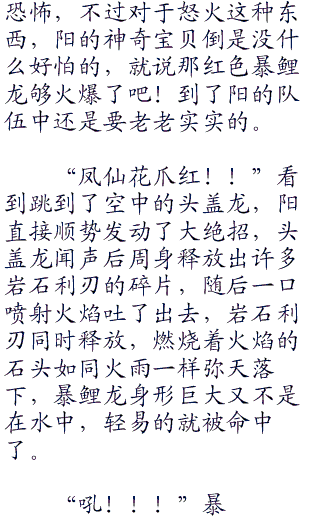 恐怖，不过对于怒火这种东
西，阳的神奇宝贝倒是没什
么好怕的，就说那红色暴鲤
龙够火爆了吧！到了阳的队
伍中还是要老老实实的。
“凤仙花爪红！！”看
到跳到了空中的头盖龙，阳
直接顺势发动了大绝招，头
盖龙闻声后周身释放出许多
岩石利刃的碎片，随后一口
喷射火焰吐了出去，岩石利
刃同时释放，燃烧着火焰的
石头如同火雨一样弥天落
下，暴鲤龙身形巨大又不是
在水中，轻易的就被命中
了。
“吼！！！”暴